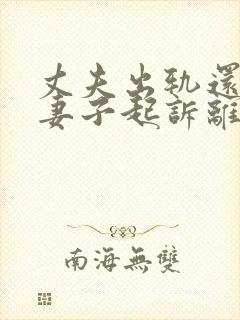 丈夫出轨還
妻子起訴離
南海無雙